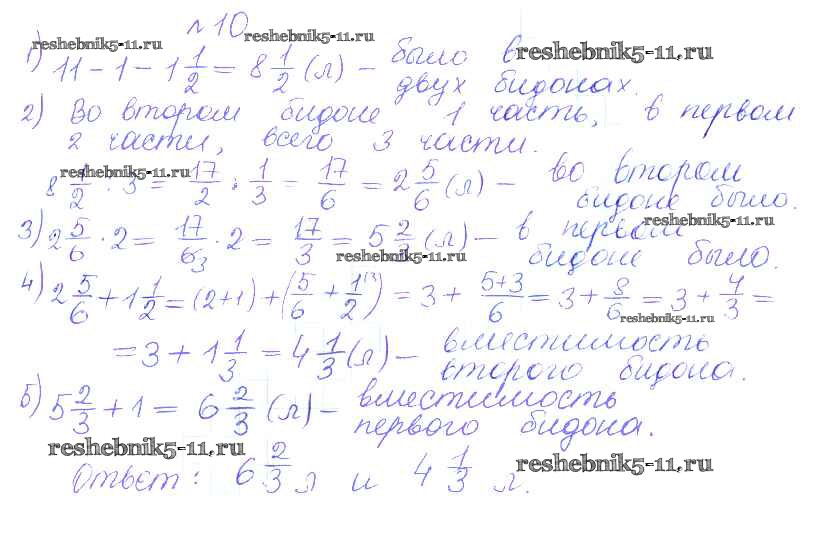 №10
reshebnik5-11.ru reshebnik5-11.ru reshebnik5-11.ru
1) 11 - 1 - 1 1/2 = 8 1/2 (л) - было в
двух бидонах.
2) Во втором бидоне 1 часть, в первом
2 части, всего 3 части.
reshebnik5-11.ru
8 1/2 : 3 = 17/2 : 1/3 = 17/6 = 2 5/6 (л) - во втором
бидоне было.
reshebnik5-11.ru
3) 2 5/6 · 2 = 17/6 3 · 2 = 17/3 = 5 2/3 (л) - в первом
бидоне было.
reshebnik5-11.ru
4) 2 5/6 + 1 1/2 = (2+1) + (5/6 + 1/2 (3) = 3 + 5+3/6 = 3 + 8/6 = 3 + 4/3 =
reshebnik5-11.ru
= 3 + 1 1/3 = 4 1/3 (л) - вместимость
второго бидона.
5) 5 2/3 + 1 = 6 2/3 (л) - вместимость
первого бидона.
reshebnik5-11.ru
Ответ: 6 2/3 л и 4 1/3 л.
reshebnik5-11.ru